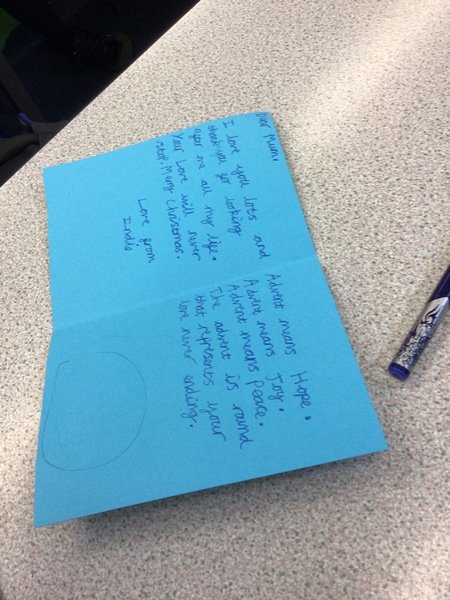 Dear Mum,
I love you lots and
thank you for looking
after me all my life.
Your Love will never
stop. Merry Christmas.
Love from
Indie
Advent means Hope.
Advent means Joy.
Advent means Peace.
The advent is round
that represents your
love never ending.